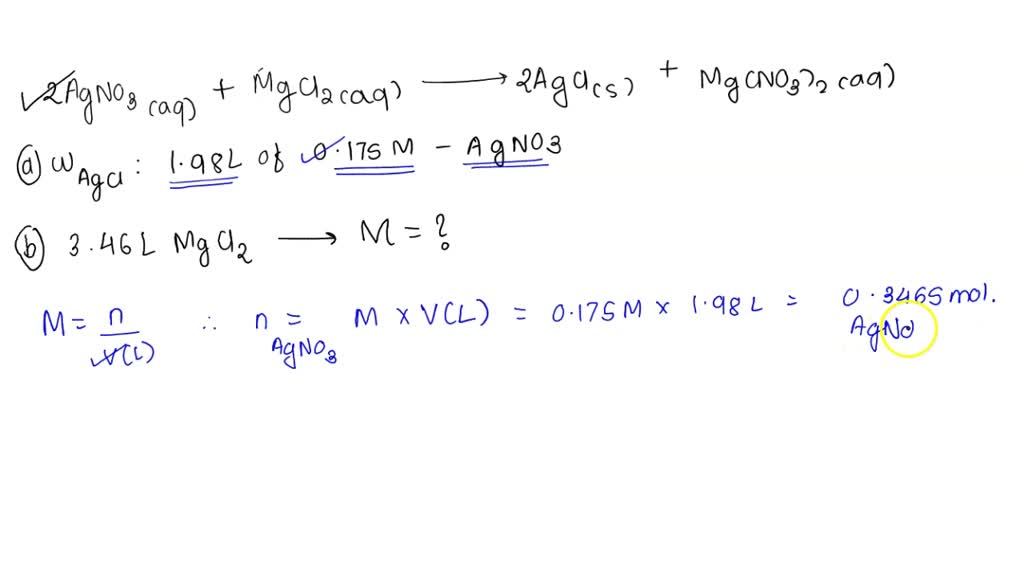 2AgNO3(aq) + MgCl2(aq) ⟶ 2AgCl(s) + Mg(NO3)2(aq)
(a) WAgCl : 1.98L of 0.175 M - AgNO3
(b) 3.46L MgCl2 ⟶ M = ?
M = n/V(L) ∴ nAgNO3 = M × V(L) = 0.175 M × 1.98 L = 0.3465 mol.
AgNO